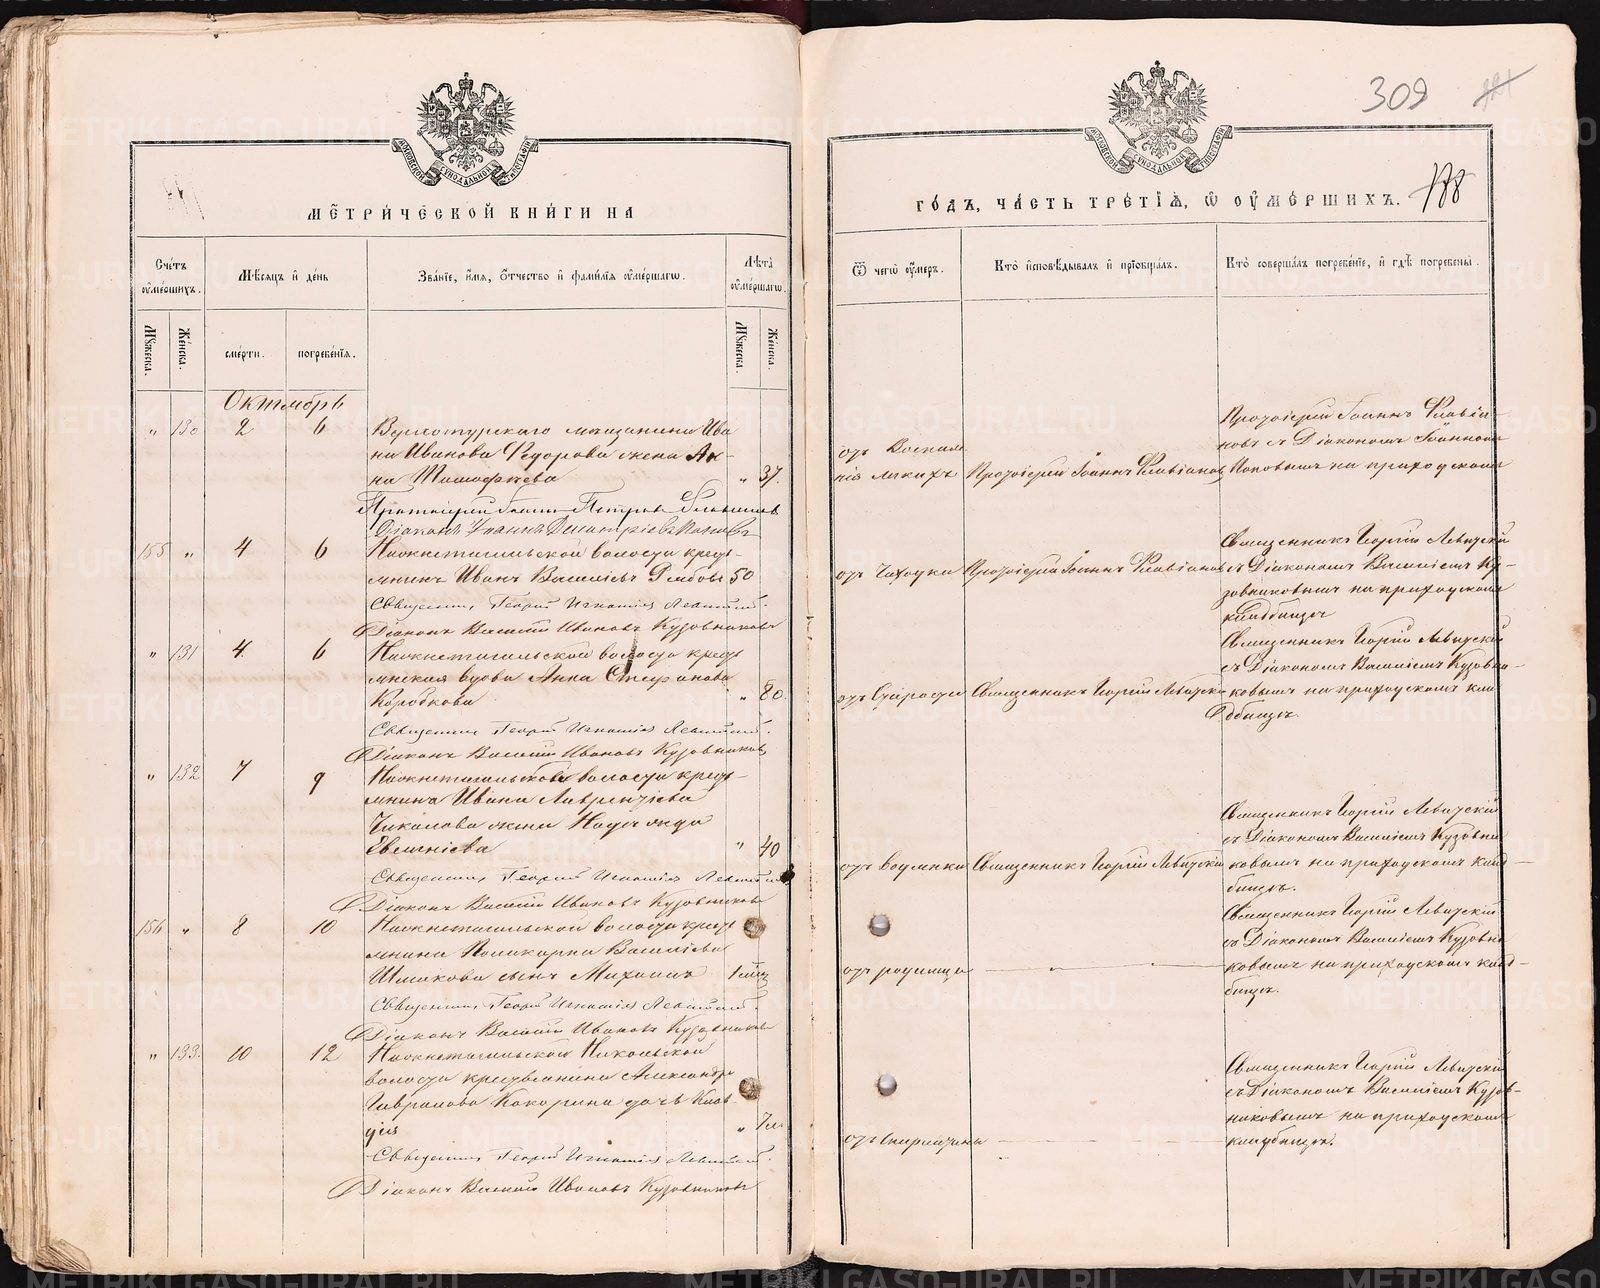 309
188
МЕТРИЧЕСКОЙ КНИГИ НА
ГОДЪ, ЧАСТЬ ТРЕТІЯ, Ѿ ОУМЕРШИХЪ.
Счетъ оумершихъ.
Мѣсяцъ и день
Званіе, имя, отчество и фамилія оумершагѡ.
Лѣта оумершагѡ.
Ѿ чегѡ оумеръ.
Кто исповѣдывалъ и пріобщалъ.
Кто совершалъ погребеніе, и гдѣ погребены.
Мужеска.
Женска.
смерти.
погребенія.
Мужеска.
Женска.
Октябрь
" 130 2 6
Верхотурскаго мѣщанина Ива
на Иванова Федорова жена Ан-
на Тимофѣева " 37.
отъ Воспале
нія легкихъ
Протоіерей Іоаннъ Флавіановъ
Протоіерей Іоаннъ Флавіа-
новъ съ Діакономъ Іоанномъ
Поповымъ на приходскомъ
Протоіерей Іоаннъ Петровъ Флавіановъ
Діаконъ Іоаннъ Димитріевъ Поповъ
155 " 4 6
Нижнетагильской волости кресть-
янинъ Иванъ Василіевъ 50
отъ Чахотки
Протоіерей Іоаннъ Флавіановъ
Священникъ Георгій Левитскій
съ Діакономъ Василіемъ Ку-
зовниковымъ на приходскомъ
кладбищѣ
Священникъ Георгій Игнатіевъ Левитскій.
Діаконъ Василій Ивановъ Кузовниковъ
" 131 4 6
Нижнетагильской волости кресть
янская вдова Анна Стефанова
Коробкова " 80.
отъ Старости
Священникъ Георгій Левитскій
Священникъ Георгій Левитскій
съ Діакономъ Василіемъ Кузовни-
ковымъ на приходскомъ кла
дбищѣ.
Священникъ Георгій Игнатіевъ Левитскій.
Діаконъ Василій Ивановъ Кузовниковъ
" 132 7 9
Нижнетагильской волости кресть-
янина Ивана Лаврентіева
Чикалова жена Надежда
Евгеніева " 40
отъ водянки
Священникъ Георгій Левитскій
Священникъ Георгій Левитскій
съ Діакономъ Василіемъ Кузовни
ковымъ на приходскомъ клад-
бищѣ.
Священникъ Георгій Игнатіевъ Левитскій
Діаконъ Василій Ивановъ Кузовниковъ
156 " 8 10
Нижнетагильской волости кресть
янина Поликарпа Василіева
Шмакова сынъ Михаилъ
отъ родимца
Священникъ Георгій Левитскій
съ Діакономъ Василіемъ Кузовни
ковымъ на приходскомъ клад-
бищѣ.
Священникъ Георгій Игнатіевъ Левитскій.
Діаконъ Василій Ивановъ Кузовниковъ
" 133. 10 12
Нижнетагильской Никольской
волости крестьянина Александра
Гаврилова Кокорина дочь Клав-
дія " 7 м.
Священникъ Георгій Левитскій
съ Діакономъ Василіемъ Кузов-
никовымъ на приходскомъ
кладбищѣ.
Священникъ Георгій Игнатіевъ Левитскій.
Діаконъ Василій Ивановъ Кузовниковъ
METRIKI.GASO-URAL.RU